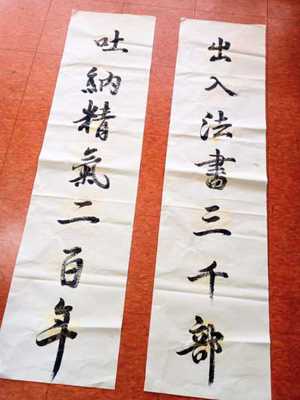 出入法書三千部
吐納精氣二百年